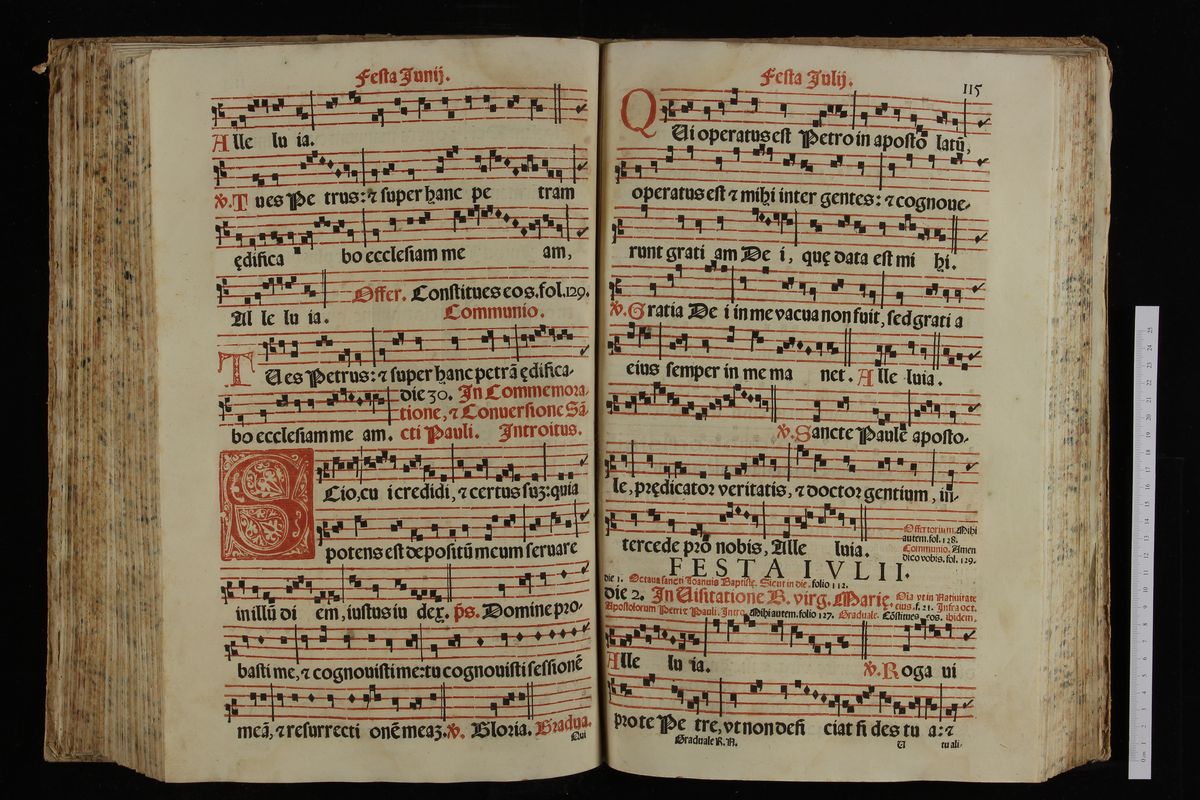 Festa Junij.
Alle lu ia.
℣. Tu es Pe trus: ⁊ super hanc pe tram
ędifica bo ecclesiam me am,
Offer. Constitues eos. fol. 129.
Al le lu ia. Communio.
TU es Petrus: ⁊ super hanc petrā ędifica-
die 30. In Commemora
tione, ⁊ Conuersione Sā-
bo ecclesiam me am. cti Pauli. Introitus.
SCio, cu i credidi, ⁊ certus suꝫ: quia
potens est depositū meum seruare
in illū di em, iustus iu dex. p̄s. Domine pro-
basti me, ⁊ cognouisti me: tu cognouisti sessionē
meā, ⁊ resurrecti onē meaꝫ. ℣. Gloria. Gradua.
Qui
Festa Julij.
115
QUi operatus est Petro in aposto latū,
operatus est ⁊ mihi inter gentes: ⁊ cognoue-
runt grati am De i, quę data est mi hi.
℣. Gratia De i in me vacua non fuit, sed grati a
eius semper in me ma net. Alle luia.
℣. Sancte Paule aposto-
le, prędicator veritatis, ⁊ doctor gentium, in-
Offertorium. Mihi
autem. fol. 128.
Communio. Amen
dico vobis. fol. 129.
tercede pro nobis, Alle luia.
FESTA IVLII.
die 1. Octaua sancti Joannis Baptistę. Sicut in die. folio 112.
die 2. In Uisitatione B. virg. Marię. Oīa vt in Natiuitate
eius. f. 21. Infra oct.
Apostolorum Petri ⁊ Pauli. Intro. Mihi autem. folio 127. Graduale. Cōstitues eos. ibidem.
Alle lu ia. ℣. Roga ui
pro te Pe tre, vt non defi ciat fi des tu a: ⁊
Graduale R. R. U tu ali-